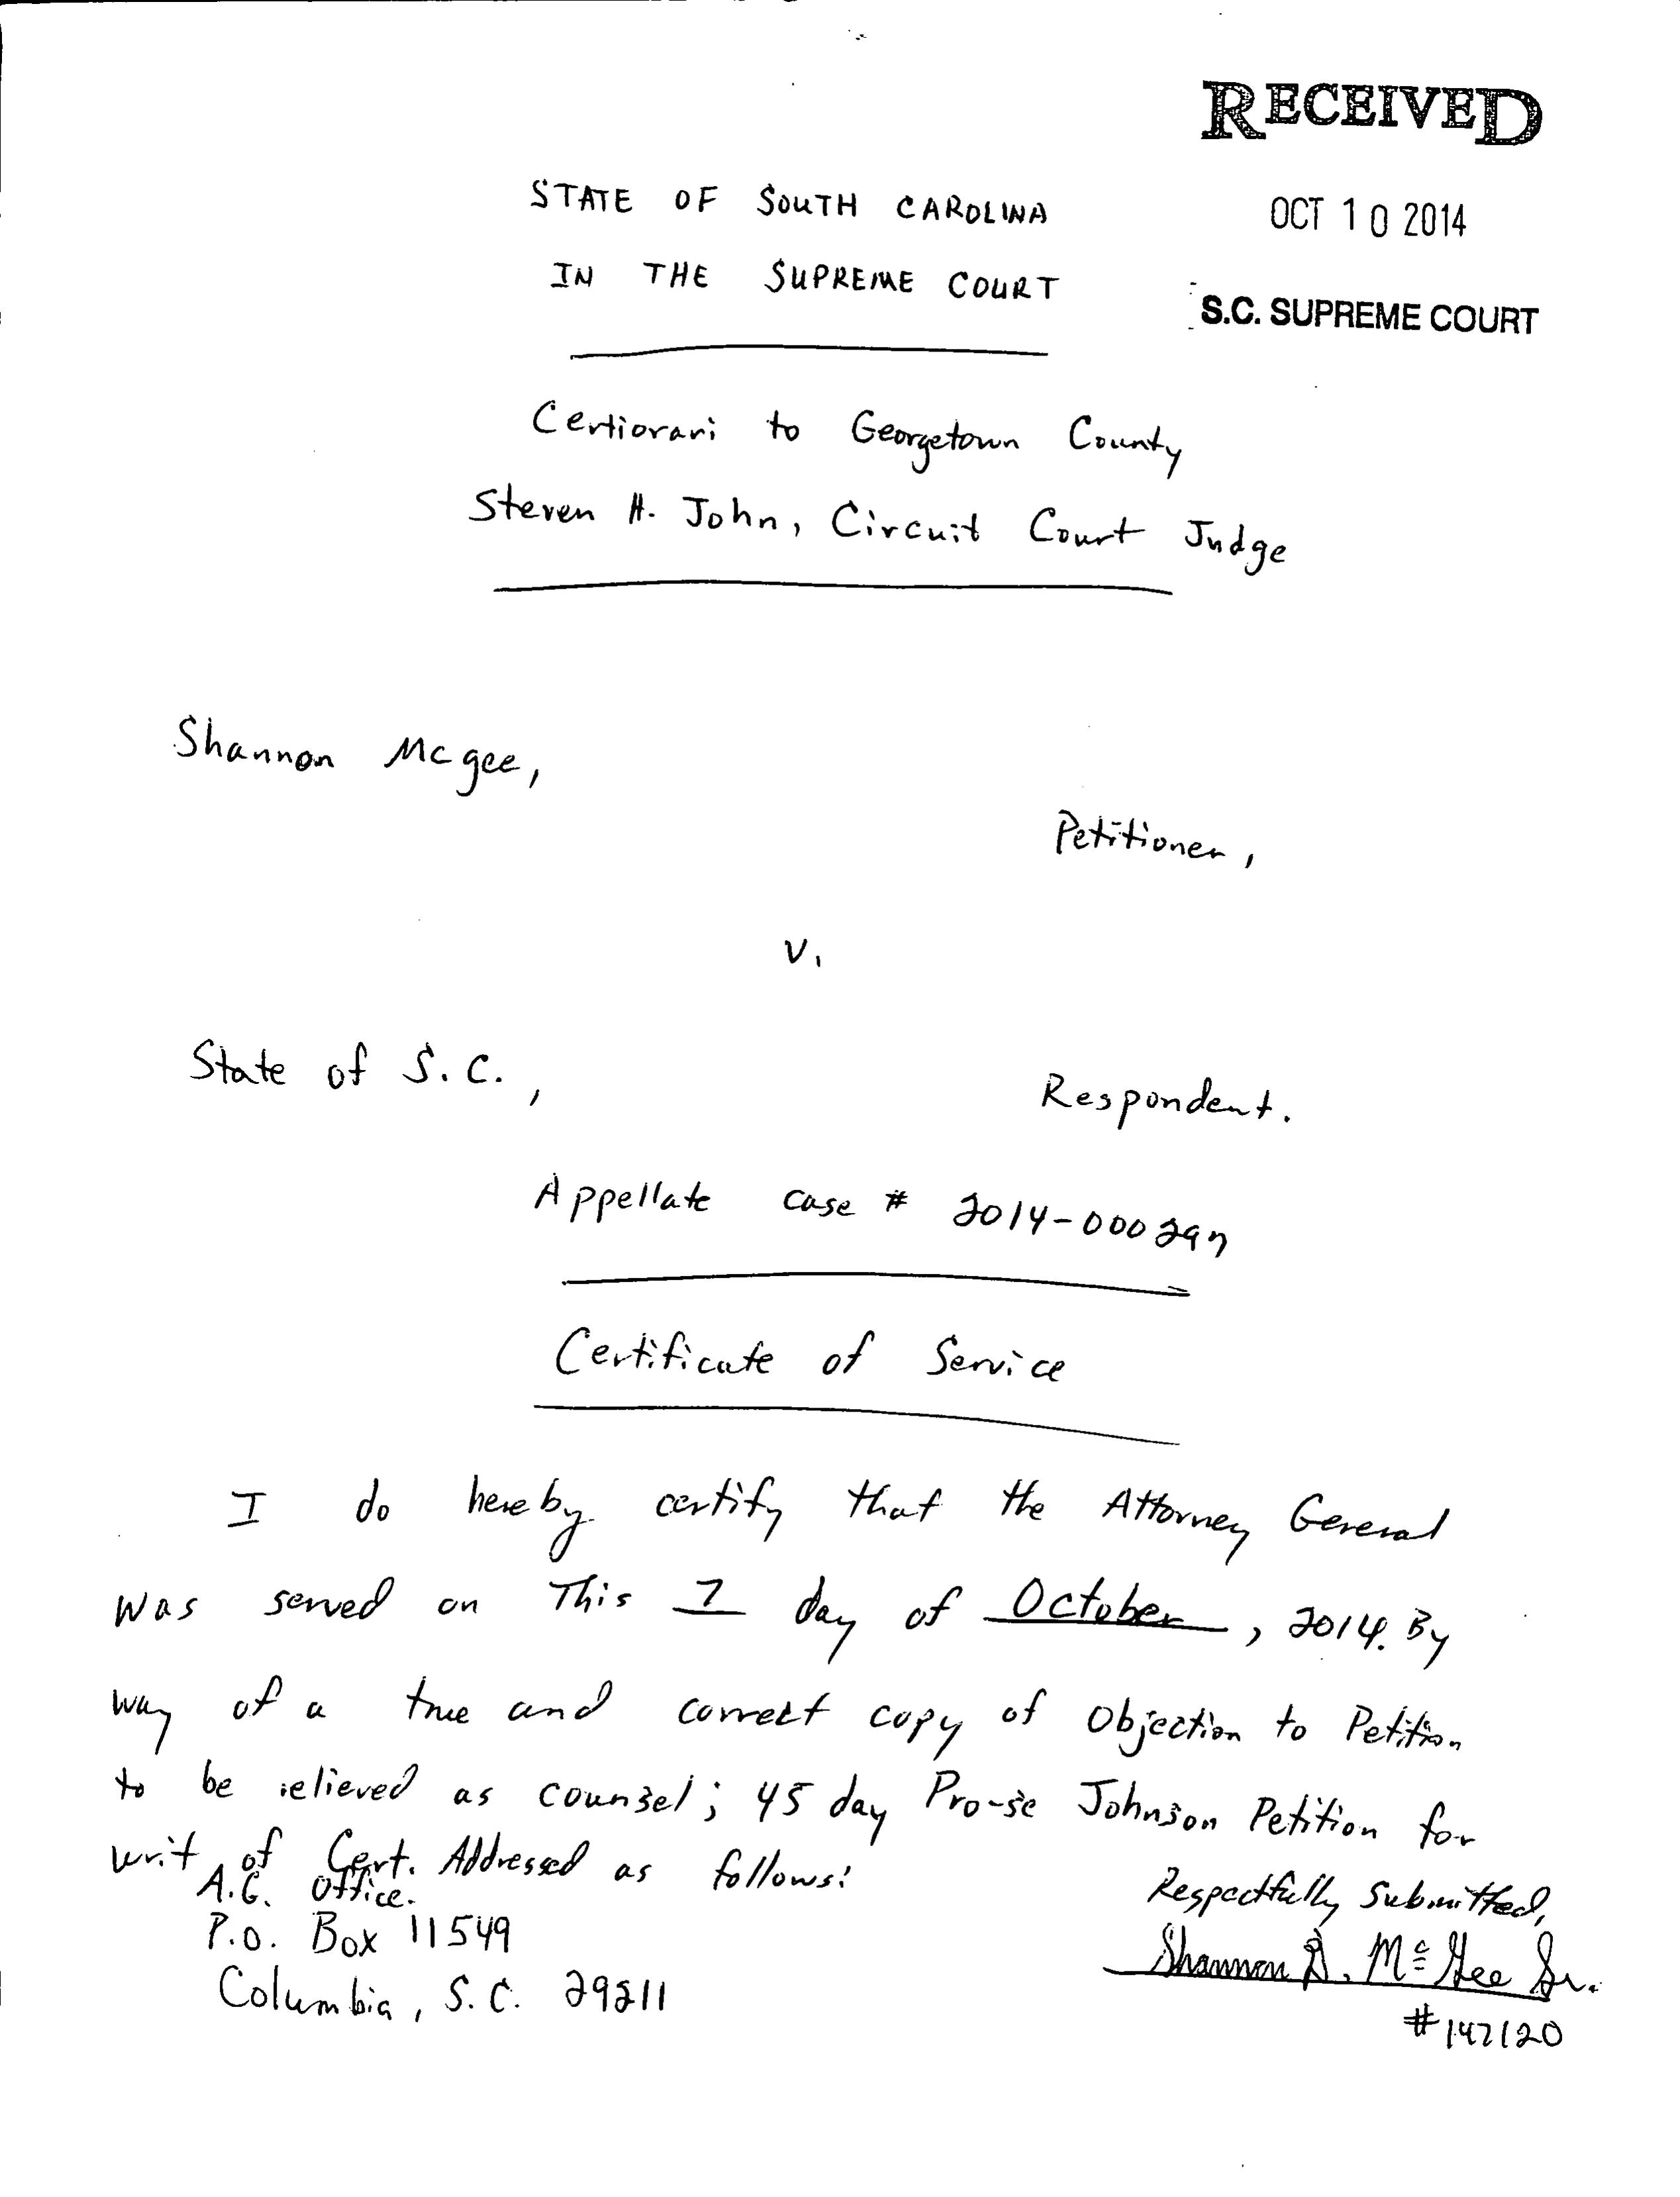 RECEIVED
OCT 10 2014
S.C. SUPREME COURT
STATE OF SOUTH CAROLINA
IN THE SUPREME COURT
Certiorari to Georgetown County
Steven H. John, Circuit Court Judge
Shannon Mcgee,
Petitioner,
v.
State of S.C.,
Respondent.
Appellate case # 2014-000297
Certificate of Service
I do hereby certify that the Attorney General
was served on This 7 day of October, 2014. By
way of a true and correct copy of Objection to Petition
to be relieved as counsel; 45 day Pro-se Johnson Petition for
writ of Cert. Addressed as follows:
A.G. Office.
P.O. Box 11549
Columbia, S.C. 29211
Respectfully Submitted,
Shannon D. McGee Sr.
#147120